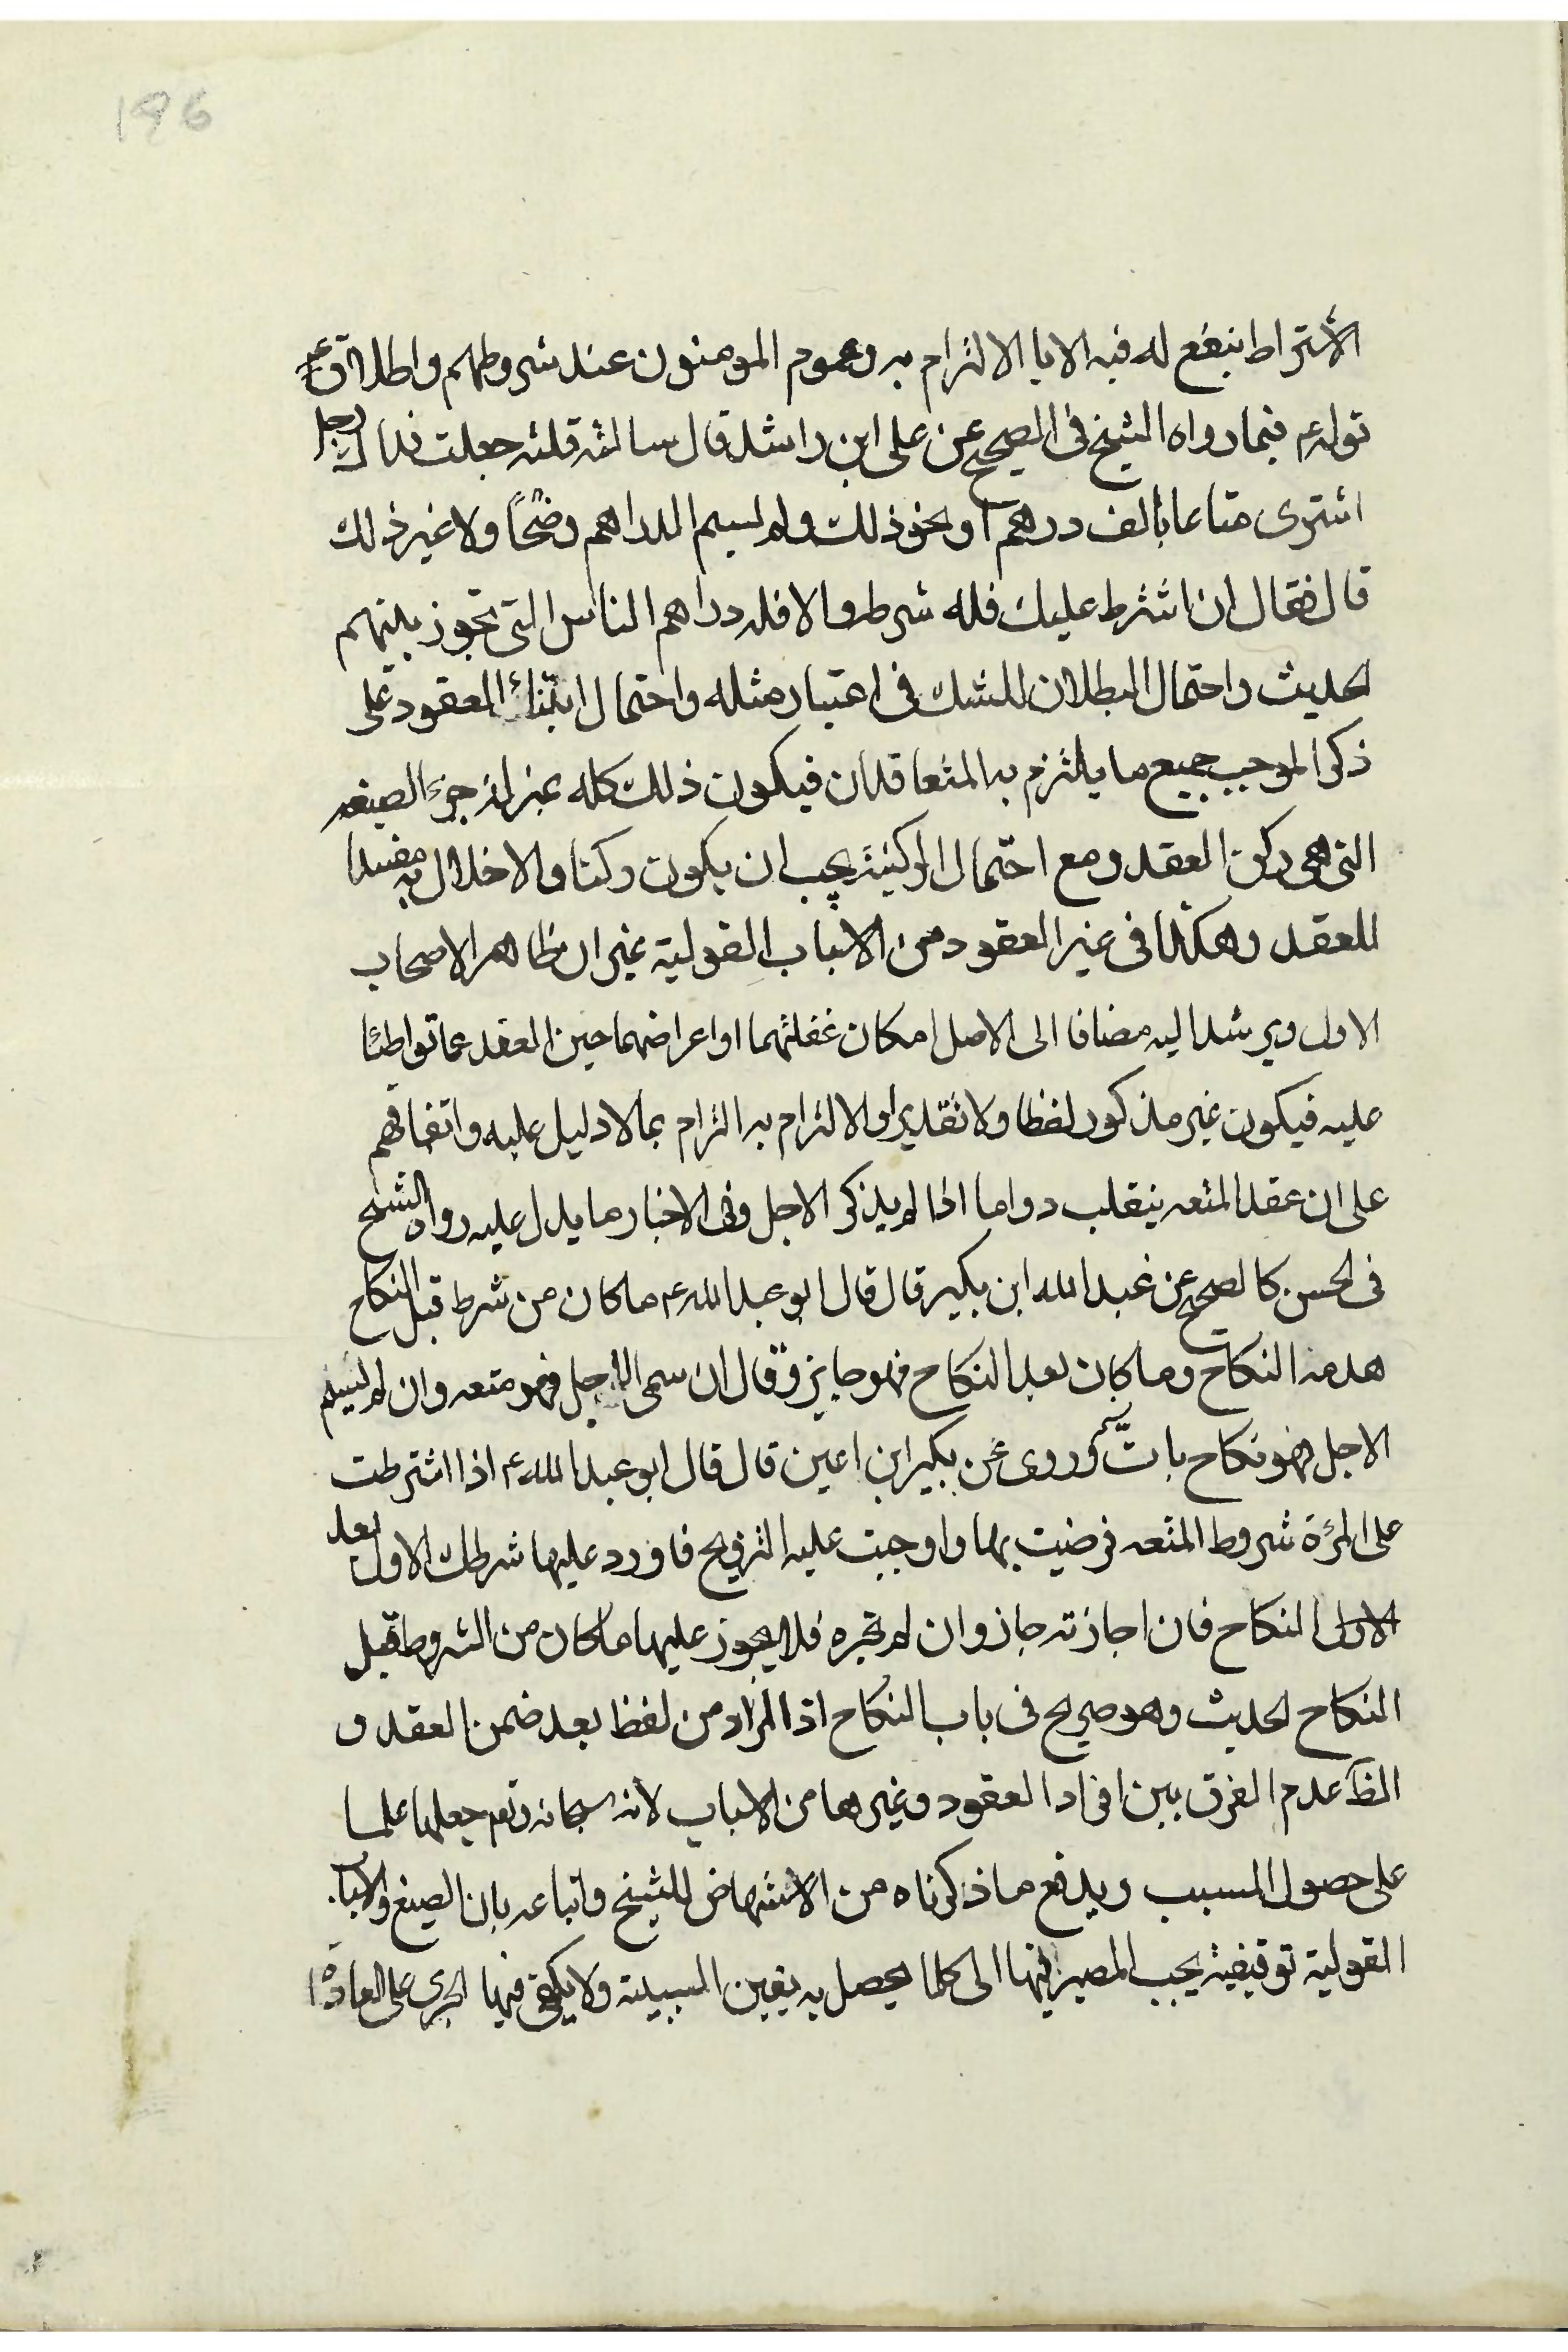 196
الاشتراط ينفع له فيه الا بالالتزام به وعموم المومنون عند شروطهم واطلاق
قوله ع فيما رواه الشيخ فى الصحيح عن على ابن راشد قال سالته قلت جعلت فداك رجل
اشترى متاعا بالف درهم او نحو ذلك ولم يسم الدراهم وضحًا ولا غير ذلك
قال فقال ان اشترط عليك فله شرطه والا فله دراهم الناس التى تجوز بينهم
الحديث واحتمال البطلان للشك فى اعتبار مثله واحتمال ابتناء العقود على
ذكر الموجب جميع ما يلتزم به المتعاقدان فيكون ذلك كله بمنزلة جزء الصيغه
التى هى ركن العقد ومع احتمال الركنية يجب ان يكون ركنا والاخلال به مفسدا
للعقد وهكذا فى غير العقود من الاسباب القولية غير ان ظاهر الاصحاب
الاول ويرشد اليه مضافا الى الاصل امكان غفلتهما او اعراضهما حين العقد عما تواطئا
عليه فيكون غير مذكور لفظا ولا تقديرا والالتزام به التزام بما لا دليل عليه واتفاقهم
على ان عقد المتعه ينقلب دواما اذا لم يذكر الاجل وفى الاخبار ما يدل عليه رواه الشيخ
فى الحسن كالصحيح عن عبد الله ابن بكير قال قال ابو عبد الله ع ما كان من شرط قبل النكاح
هدمه النكاح وما كان بعد النكاح فهو جايز وقال ان سمى الاجل فهو متعه وان لم يسم
الاجل فهو نكاح باتّ وروى عن بكير ابن اعين قال قال ابو عبد الله ع اذا اشترطت
على المرئة شروط المتعه فرضيت بها واوجبت عليه التزويج فاورد عليها شرطك الاول بعد
الاول النكاح فان اجازته جاز وان لم تجزه فلا يجوز عليها ما كان من الشروط قبل
النكاح الحديث وهو صريح فى باب النكاح اذ المراد من لفظ بعد ضمن العقد و
الظ عدم الفرق بين افراد العقود وغيرها من الاسباب لانه سبحانه وتعم جعلها علما
على حصول المسبب ويدفع ما ذكرناه من الاستنهاض للشيخ واتباعه بان الصيغ والاسباب
القولية توقيفية يجب المصير فيها الى كلما يحصل به يقين السببية ولا يكفى فيها الجرى على العادة